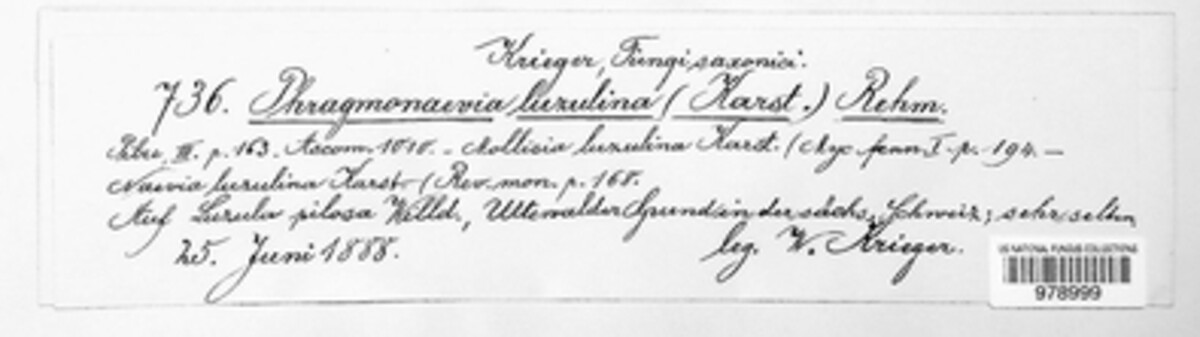 Krieger, Fungi saxonici.
736. Phragmonaevia luzulina (Karst.) Rehm.
III. p. 163. Ascom. 1010. – Mollisia luzulina Karst. (Myc. fenn. I. p. 194. –
Naevia luzulina Karst. (Rev. mon. p. 168.
Auf Luzula pilosa Willd., Uttewalder Grund in der sächs. Schweiz; sehr selten
25. Juni 1888. leg. W. Krieger.
US NATIONAL FUNGUS COLLECTIONS
978999